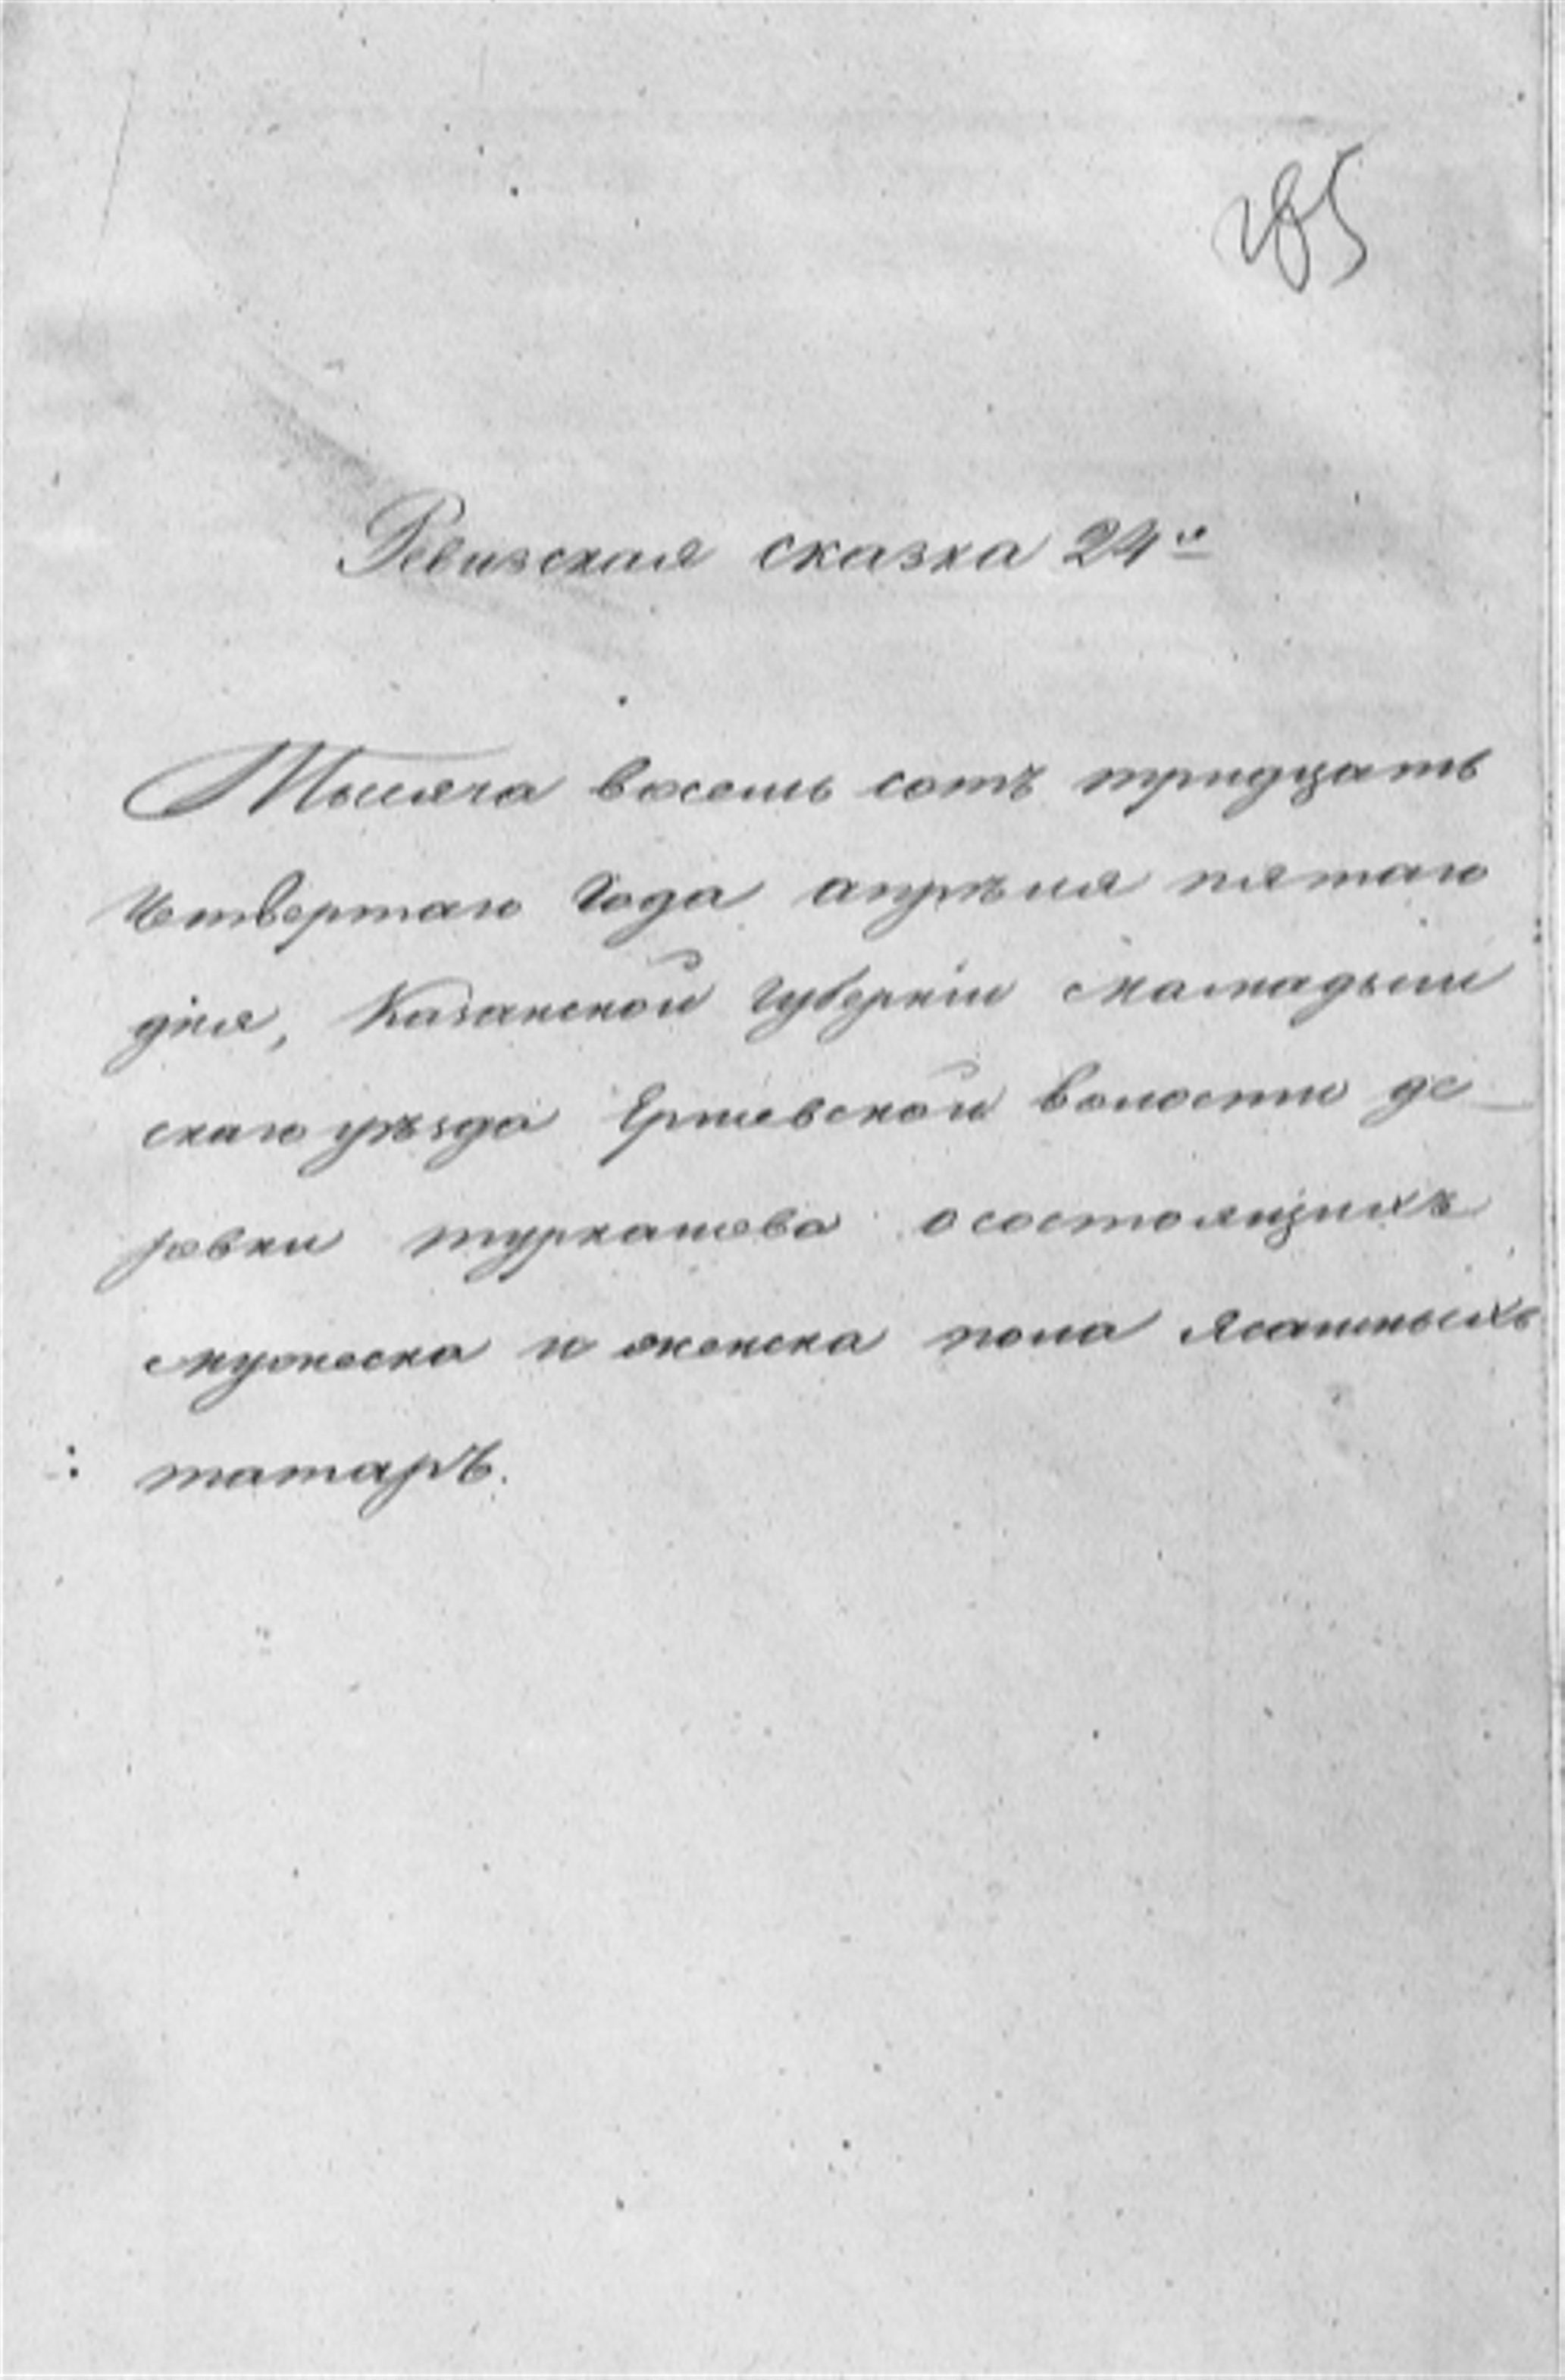 285
Ревизская сказка 24я
Тысяча восемь сотъ тридцать
Четвертаго года апрѣля пятаго
дня, Казанской губерніи мамадыш
скаго уѣзда Ершевской волости де
ревни туркашева о состоящихъ
мужеска и женска пола Ясашныхъ
татаръ.